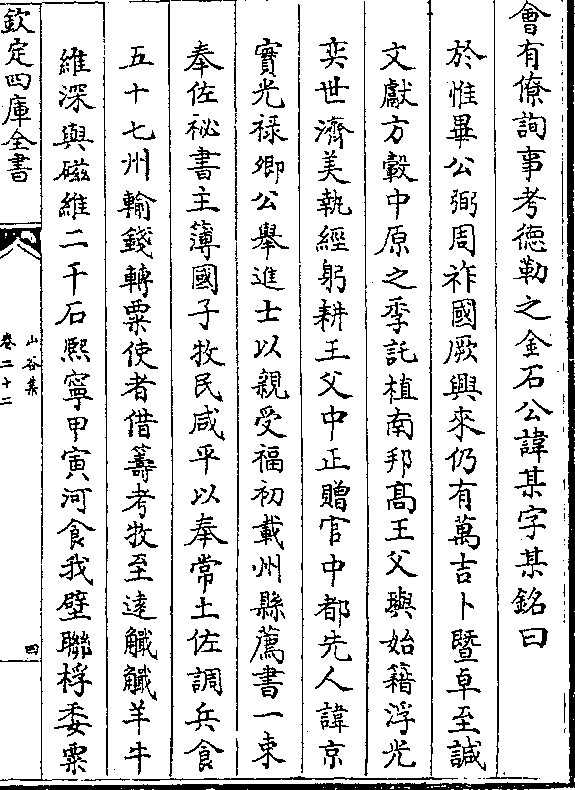 會有僚詢事考徳勒之金石公諱某字某銘曰
於惟畢公弼周祚國厥興來仍有萬吉卜暨卓至誠
文獻方瑴中原之季託植南邦髙王父璵始籍浮光
奕世濟美執經躬耕王父中正贈官中都先人諱京
實光禄卿公舉進士以親受福初載州縣薦書一束
奉佐秘書主薄國子牧民咸平以奉常土佐調兵食
五十七州輸錢轉粟使者借籌考牧至逵觿觿羊牛
維深與磁維二千石熈寧甲寅河食我壁聯桴委粟
欽定四庫全書
山谷集
卷二十二
四